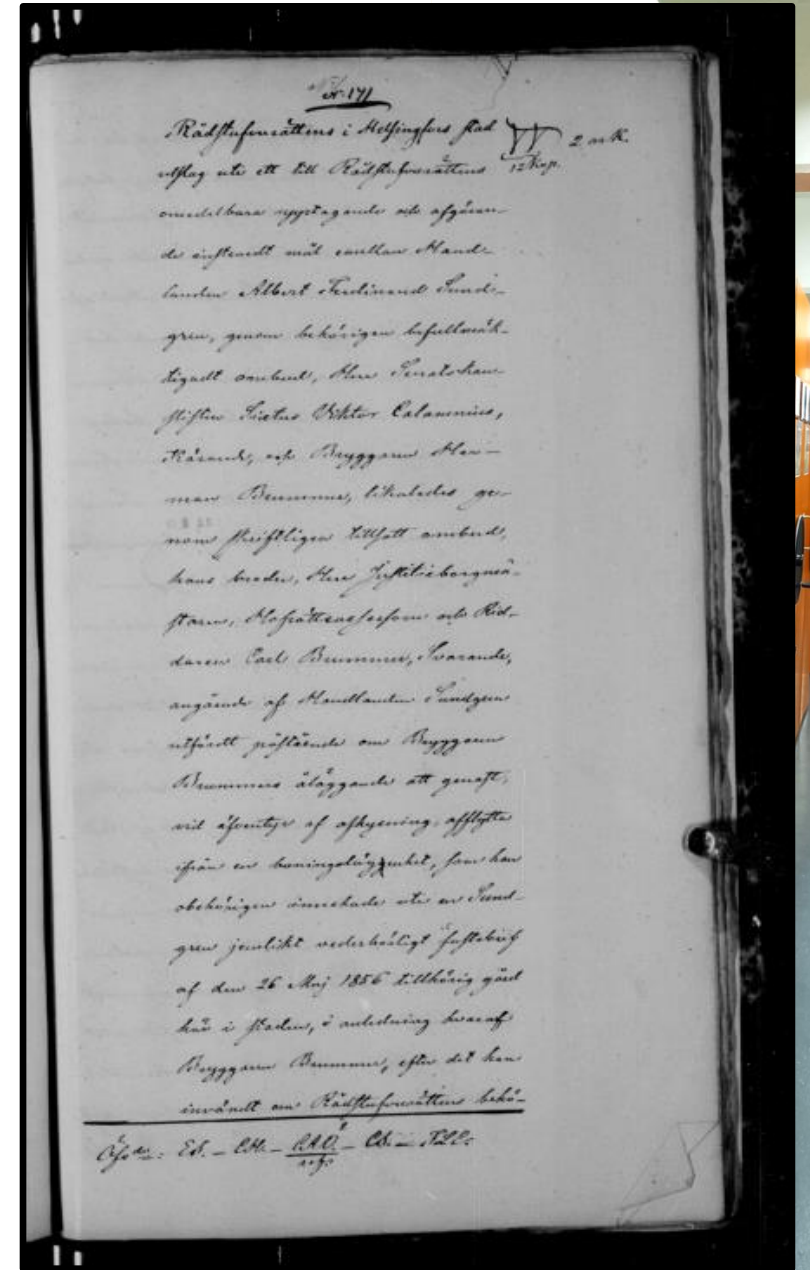 N:171
Rådstufvurättens i Helsingfors stad
utslag uti ett till Rådstufvurättens
omedelbara upptagande och afgöran-
de instämdt mål emellan Hand-
landen Albert Ferdinand Sund-
gren, genom behörigen befullmäk-
tigadt ombud, Herr Senatskan-
slisten Sixtus Viktor Calamnius,
Kärande, och Bryggaren Her-
man Brummer, likaledes ge-
nom skriftligen tillsatt ombud,
hans broder, Herr Justitieborgmä-
staren, Hofrättsassessorn och Rid-
daren Carl Brummer, Svarande,
angående af Handlanden Sundgren
utfördt påstående om Bryggaren
Brummers åläggande att genast,
vid äfventyr af afhysning, afflytta
ifrån en boningslägenhet, som han
obehörigen innehade uti en Sund-
gren jemlikt vederbörligt fastebref
af den 26 Maj 1856 tillhörig gård
här i staden, i anledning hvaraf
Bryggaren Brummer, efter det han
invändt om Rådstufvurättens behö-
2 ark.
12 kop.